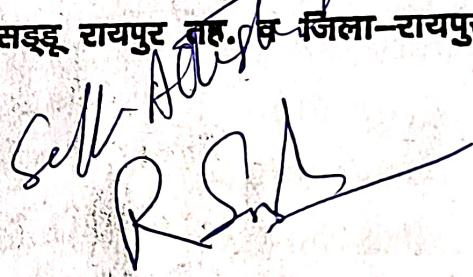 सड्डू रायपुर तह. व जिला–रायपुर
Self Attested